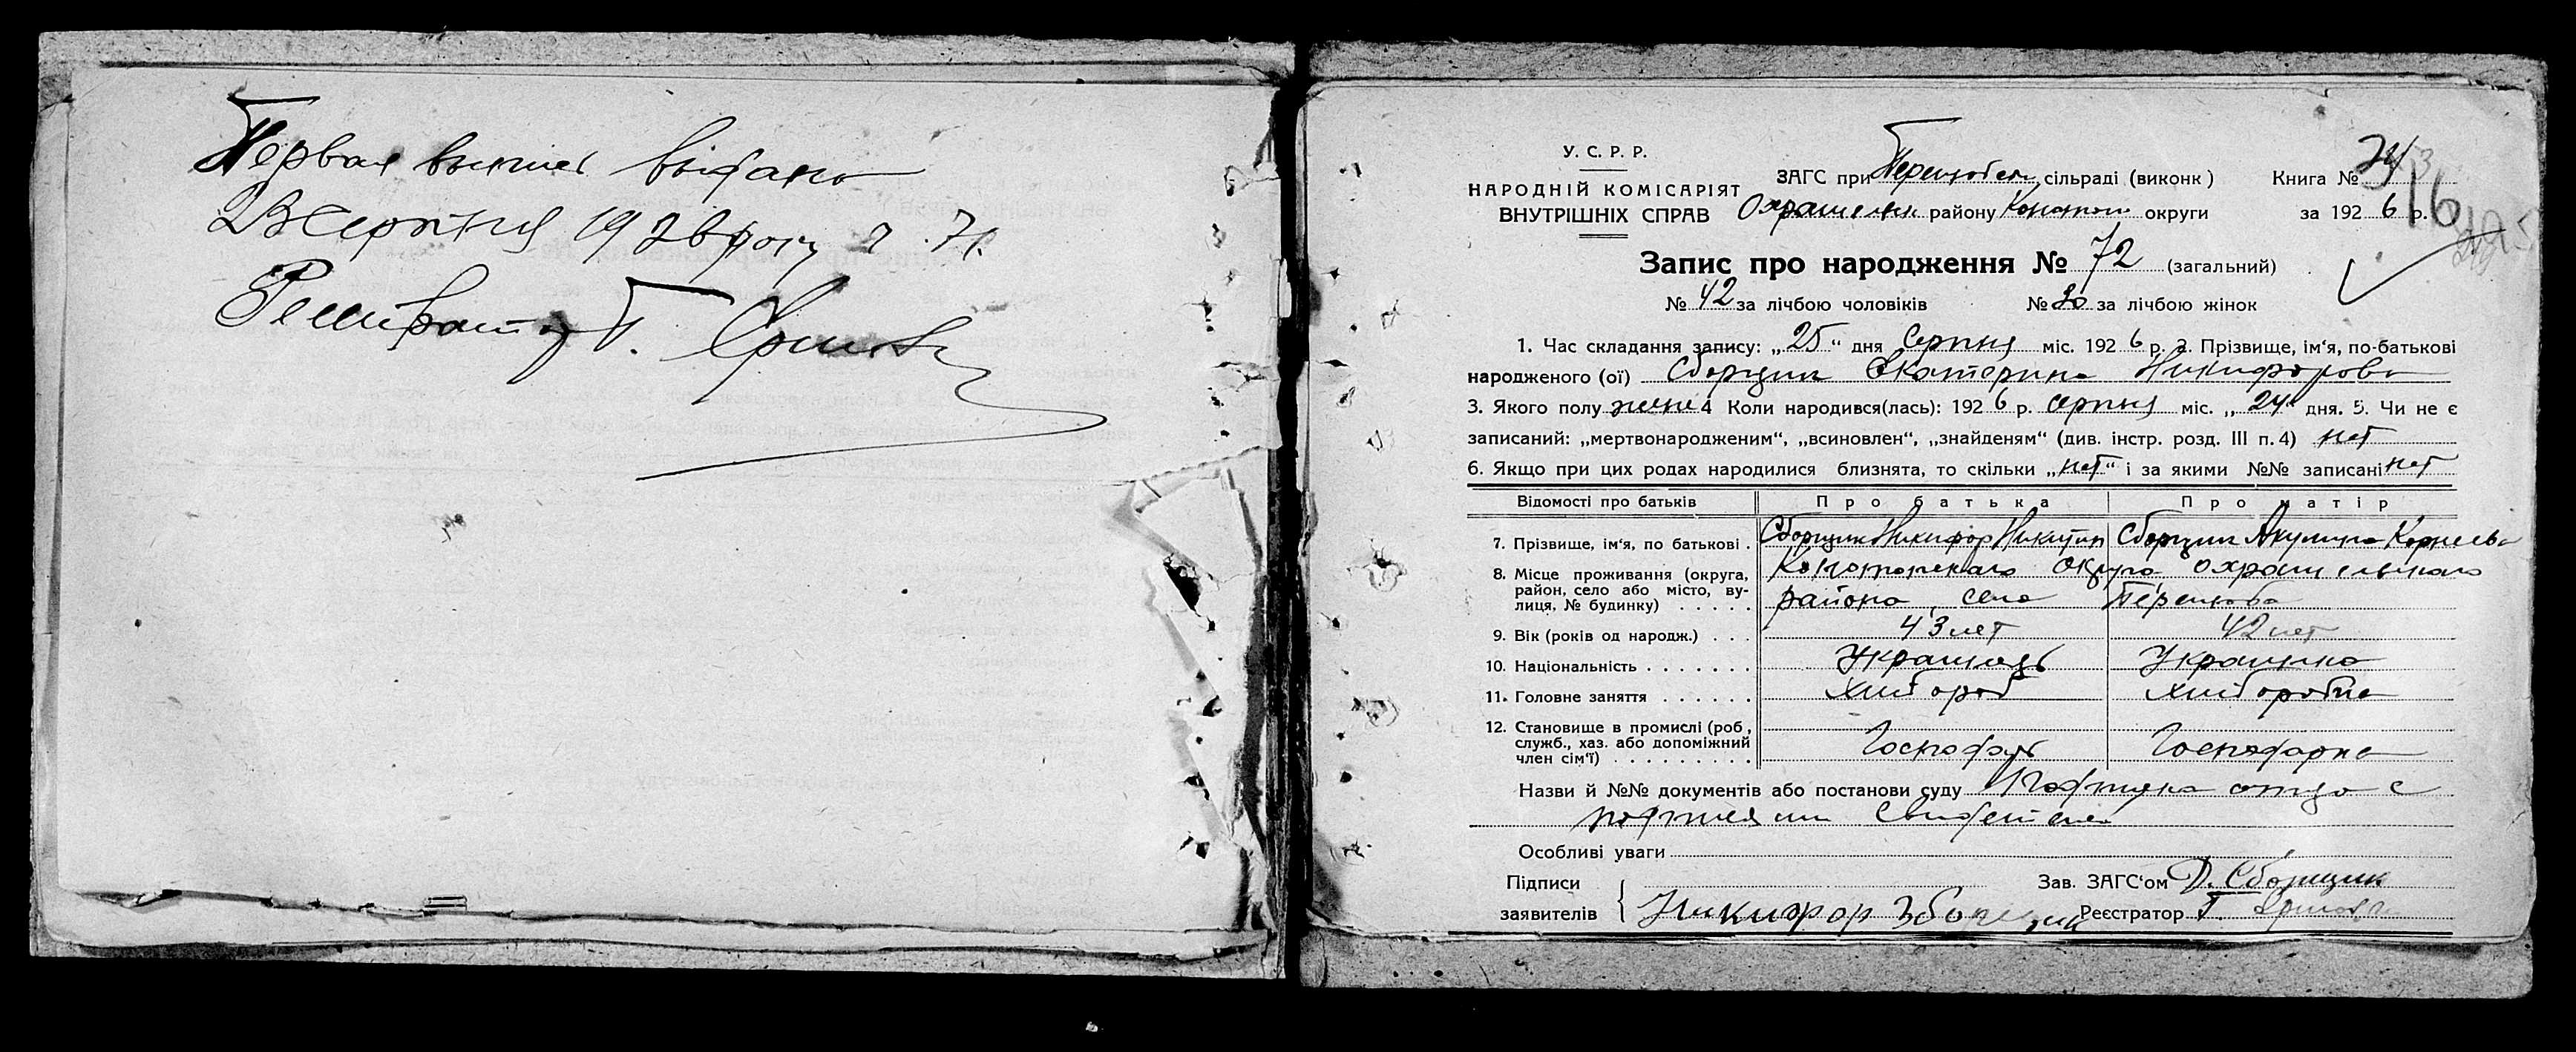 Первая выпись выдана
Серпня 1926 року
Реєстратор Г.
У. С. Р. Р.
НАРОДНІЙ КОМІСАРІЯТ
ВНУТРІШНІХ СПРАВ
ЗАГС при сільраді (виконк)
району Коното округи
Книга №
за 1926 р.
16
Запис про народження № 72 (загальний)
№ 42 за лічбою чоловіків № 30 за лічбою жінок
1. Час складання запису: „25“ дня Серпня міс. 1926 р. 2. Прізвище, ім‘я, по-батькові
народженого (ої) Сборщик Екатерина Никифорова
3. Якого полу жен 4 Коли народився(лась): 1926 р. серпня міс. „24“ дня. 5. Чи не є
записаний: „мертвонародженим“, „всиновлен“, „знайденям“ (див. інстр. розд. III п. 4) нет
6. Якщо при цих родах народилися близнята, то скільки „нет“ і за якими №№ записані нет
Відомості про батьків Про батька Про матір
7. Прізвище, ім‘я, по батькові . Сборщик Никифор Никитин Сборщик Акулина Корнеева
8. Місце проживання (округа, Конотопского округа
район, село або місто, ву- района села
лиця, № будинку) . . . . .
9. Вік (років од народж.) . . . 43 лет 42 лет
10. Національність . . . . . . . Українець Українка
11. Головне заняття . . . . . . Хлібороб Хліборобка
12. Становище в промислі (роб,
служб., хаз. або допоміжний Господарь Господарка
член сім‘ї) . . . . . . . . .
Назви й №№ документів або постанови суду отца с
Особливі уваги
Підписи
заявителів Никифор Зборщик
Зав. ЗАГС‘ом Д. Сборщик
Реєстратор Г.